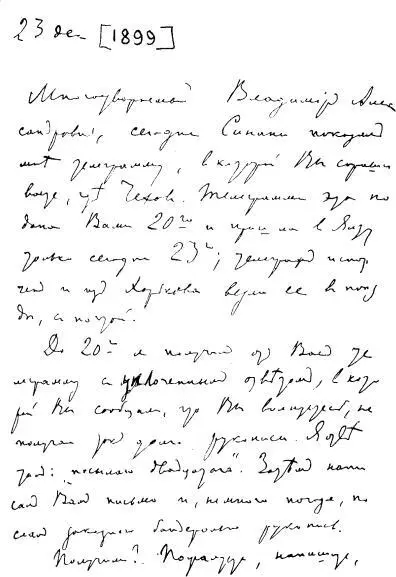 23 дек [1899]
Многоуважаемый Владимір Алек
сандровичъ, сегодня Синани показывал
мнѣ телеграмму, в которой Вы спраши
ваете, гдѣ Чехов. Телеграмма эта по
дана Вами 20го и пришла в Ялту
только сегодня 23го; телеграф испор
чен и из Харькова везли ее в поез
де, с почтой.
До 20го я получил от Вас те
леграмму с уплоченным ответом, в кото
рой Вы сообщали, что Вы волнуетесь, не
получая так долго рукописи. Я ответ
тил: "посылаю двадцатого". Затем напи
сал Вам письмо и, немного погодя, по
слал заказной бандеролью рукопись.
Получили? Пожалуйста, напишите,